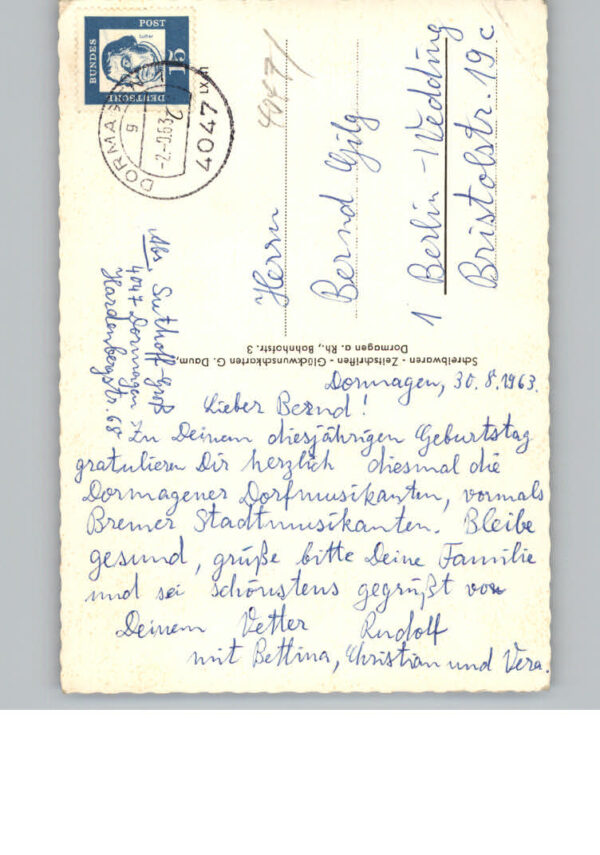 DEUTSCHE
BUNDES
POST
15
Luther
DORMAGEN
4047
4047/
Herrn
Bernd Gilg
1 Berlin-Wedding
Bristolstr. 19c
Abs. Suthoff-Groß
4047 Dormagen
Hardenbergstr. 68
Schreibwaren - Zeitschriften - Glückwunschkarten G. Daum,
Dormagen a. Rh., Bahnhofstr. 3
Dormagen, 30.8.1963.
Lieber Bernd!
Zu Deinem diesjährigen Geburtstag
gratulieren Dir herzlich diesmal die
Dormagener Dorfmusikanten, vormals
Bremer Stadtmusikanten. Bleibe
gesund, grüße bitte Deine Familie
und sei schönstens gegrüßt von
Deinem Vetter Rudolf
mit Bettina, Christian und Vera.